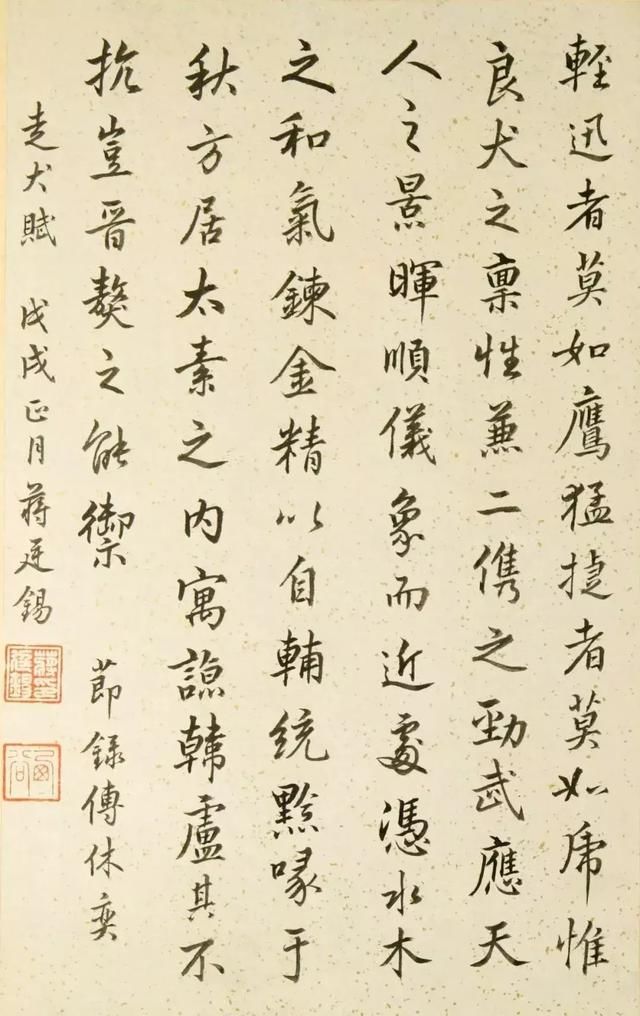 輕迅者莫如鷹猛捷者莫如虎惟
良犬之稟性兼二儁之勁武應天
人之景暉順儀象而近處憑水木
之和氣鍊金精以自輔統黔喙于
秋方居太素之內寓諒韓盧其不
抗豈晉獒之能禦 節錄傅休奕
走犬賦 戊戌正月蔣廷錫